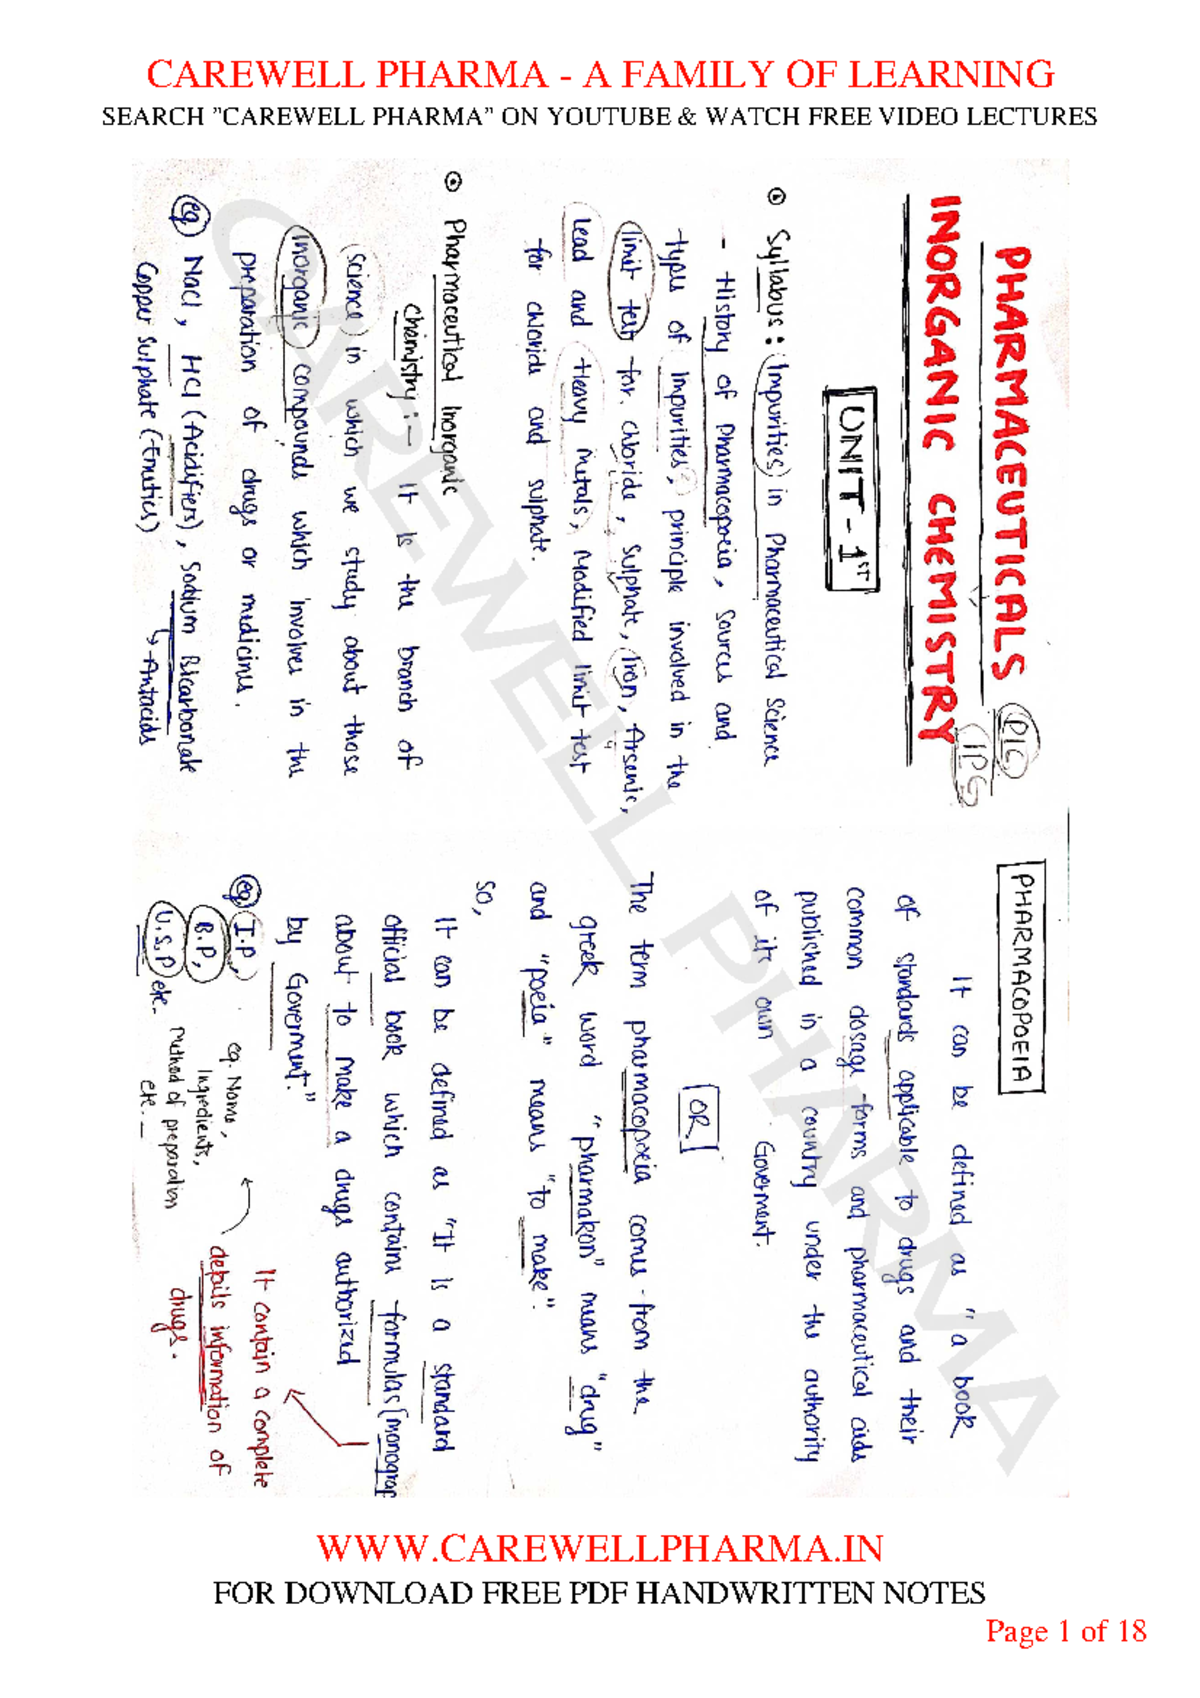 CAREWELL PHARMA - A FAMILY OF LEARNING
SEARCH "CAREWELL PHARMA" ON YOUTUBE & WATCH FREE VIDEO LECTURES
PHARMACEUTICALS PIC
INORGANIC CHEMISTRY IPS
UNIT - 1ST
Syllabus: Impurities in Pharmaceutical Science
- History of pharmacopoeia, sources and
types of impurities, principle involved in the
limit test for chloride, Sulphate, Iron, Arsenic,
Lead and Heavy Metals, Modified limit test
for chloride and sulphate.
Pharmaceutical Inorganic
Chemistry:- It is the branch of
science in which we study about those
inorganic compounds which involves in the
preparation of drugs or medicines.
eg NaCl, HCl (Acidifiers), Sodium Bicarbonate
Copper Sulphate (Emetics) ↳ Antacids
PHARMACOPOEIA
It can be defined as "a book
of standards applicable to drugs and their
common dosage forms and pharmaceutical aids
published in a country under the authority
of its own Goverment.
OR
The term pharmacopoeia comes from the
greek word "pharmakon" means "drug"
and "poeia" means "to make".
so,
It can be defined as "It is a standard
official book which contains formulas [monograp
about to make a drugs authorized
by Goverment."
eg I.P,
B.P,
U.S.P etc.
It contain a complete
details information of
drugs.
eg. Name,
Ingredients,
Method of preparation
etc.
CAREWELL PHARMA
WWW.CAREWELLPHARMA.IN
FOR DOWNLOAD FREE PDF HANDWRITTEN NOTES
Page 1 of 18